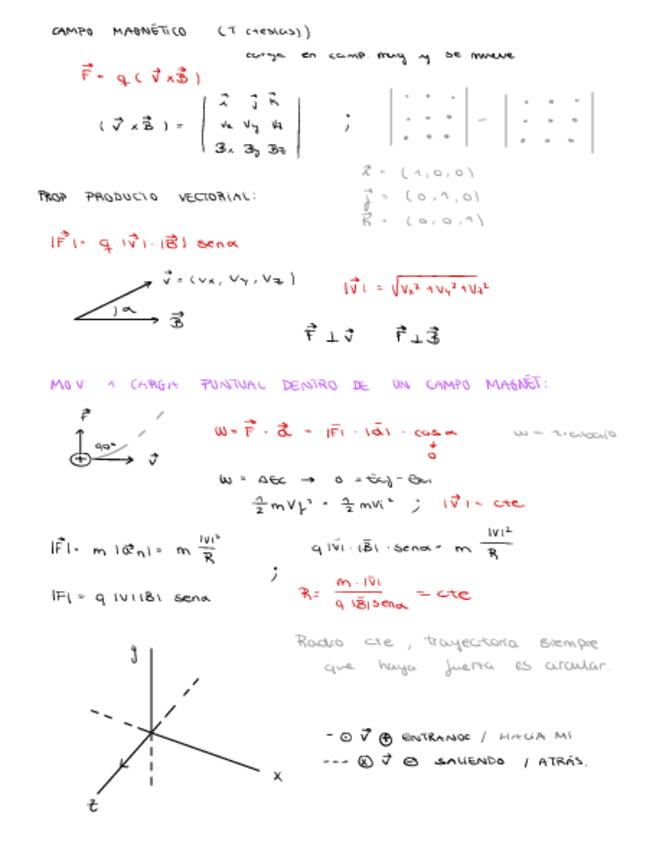 CAMPO MAGNÉTICO (T (teslas))
carga en camp muy y se mueve
F⃗ = q ( v⃗ x B⃗ )
( v⃗ x B⃗ ) = | i⃗ j⃗ k⃗ | ; | | - | |
vx vy vz
Bx By Bz
i⃗ = (1,0,0)
j⃗ = (0,1,0)
k⃗ = (0,0,1)
PROP PRODUCTO VECTORIAL:
|F⃗| = q |v⃗| · |B⃗| senα
v⃗ = (vx, vy, vz)
|v⃗| = √vx² + vy² + vz²
α
B⃗
F⃗ ⊥ v⃗ F⃗ ⊥ B⃗
MOV 1 CARGA PUNTUAL DENTRO DE UN CAMPO MAGNÉT:
F⃗
90°
+ v⃗
W = F⃗ · d⃗ = |F⃗| · |d⃗| · cosα
0
W = trabajo
W = ΔEc → 0 = Ecf - Eci
½ m vf² = ½ m vi² ; |v⃗| = cte
|F⃗| = m |a⃗n| = m |v|²/R
q |v⃗| · |B⃗| · senα = m |v|²/R
;
|F| = q |v| |B| senα
R = m · |v⃗| / q |B⃗| senα = cte
Radio cte, trayectoria siempre
que haya fuerza es circular.
y
x
z
- ⊙ v⃗ ⊕ ENTRANDO / HACIA MI
--- ⊗ v⃗ ⊖ SALIENDO / ATRÁS.